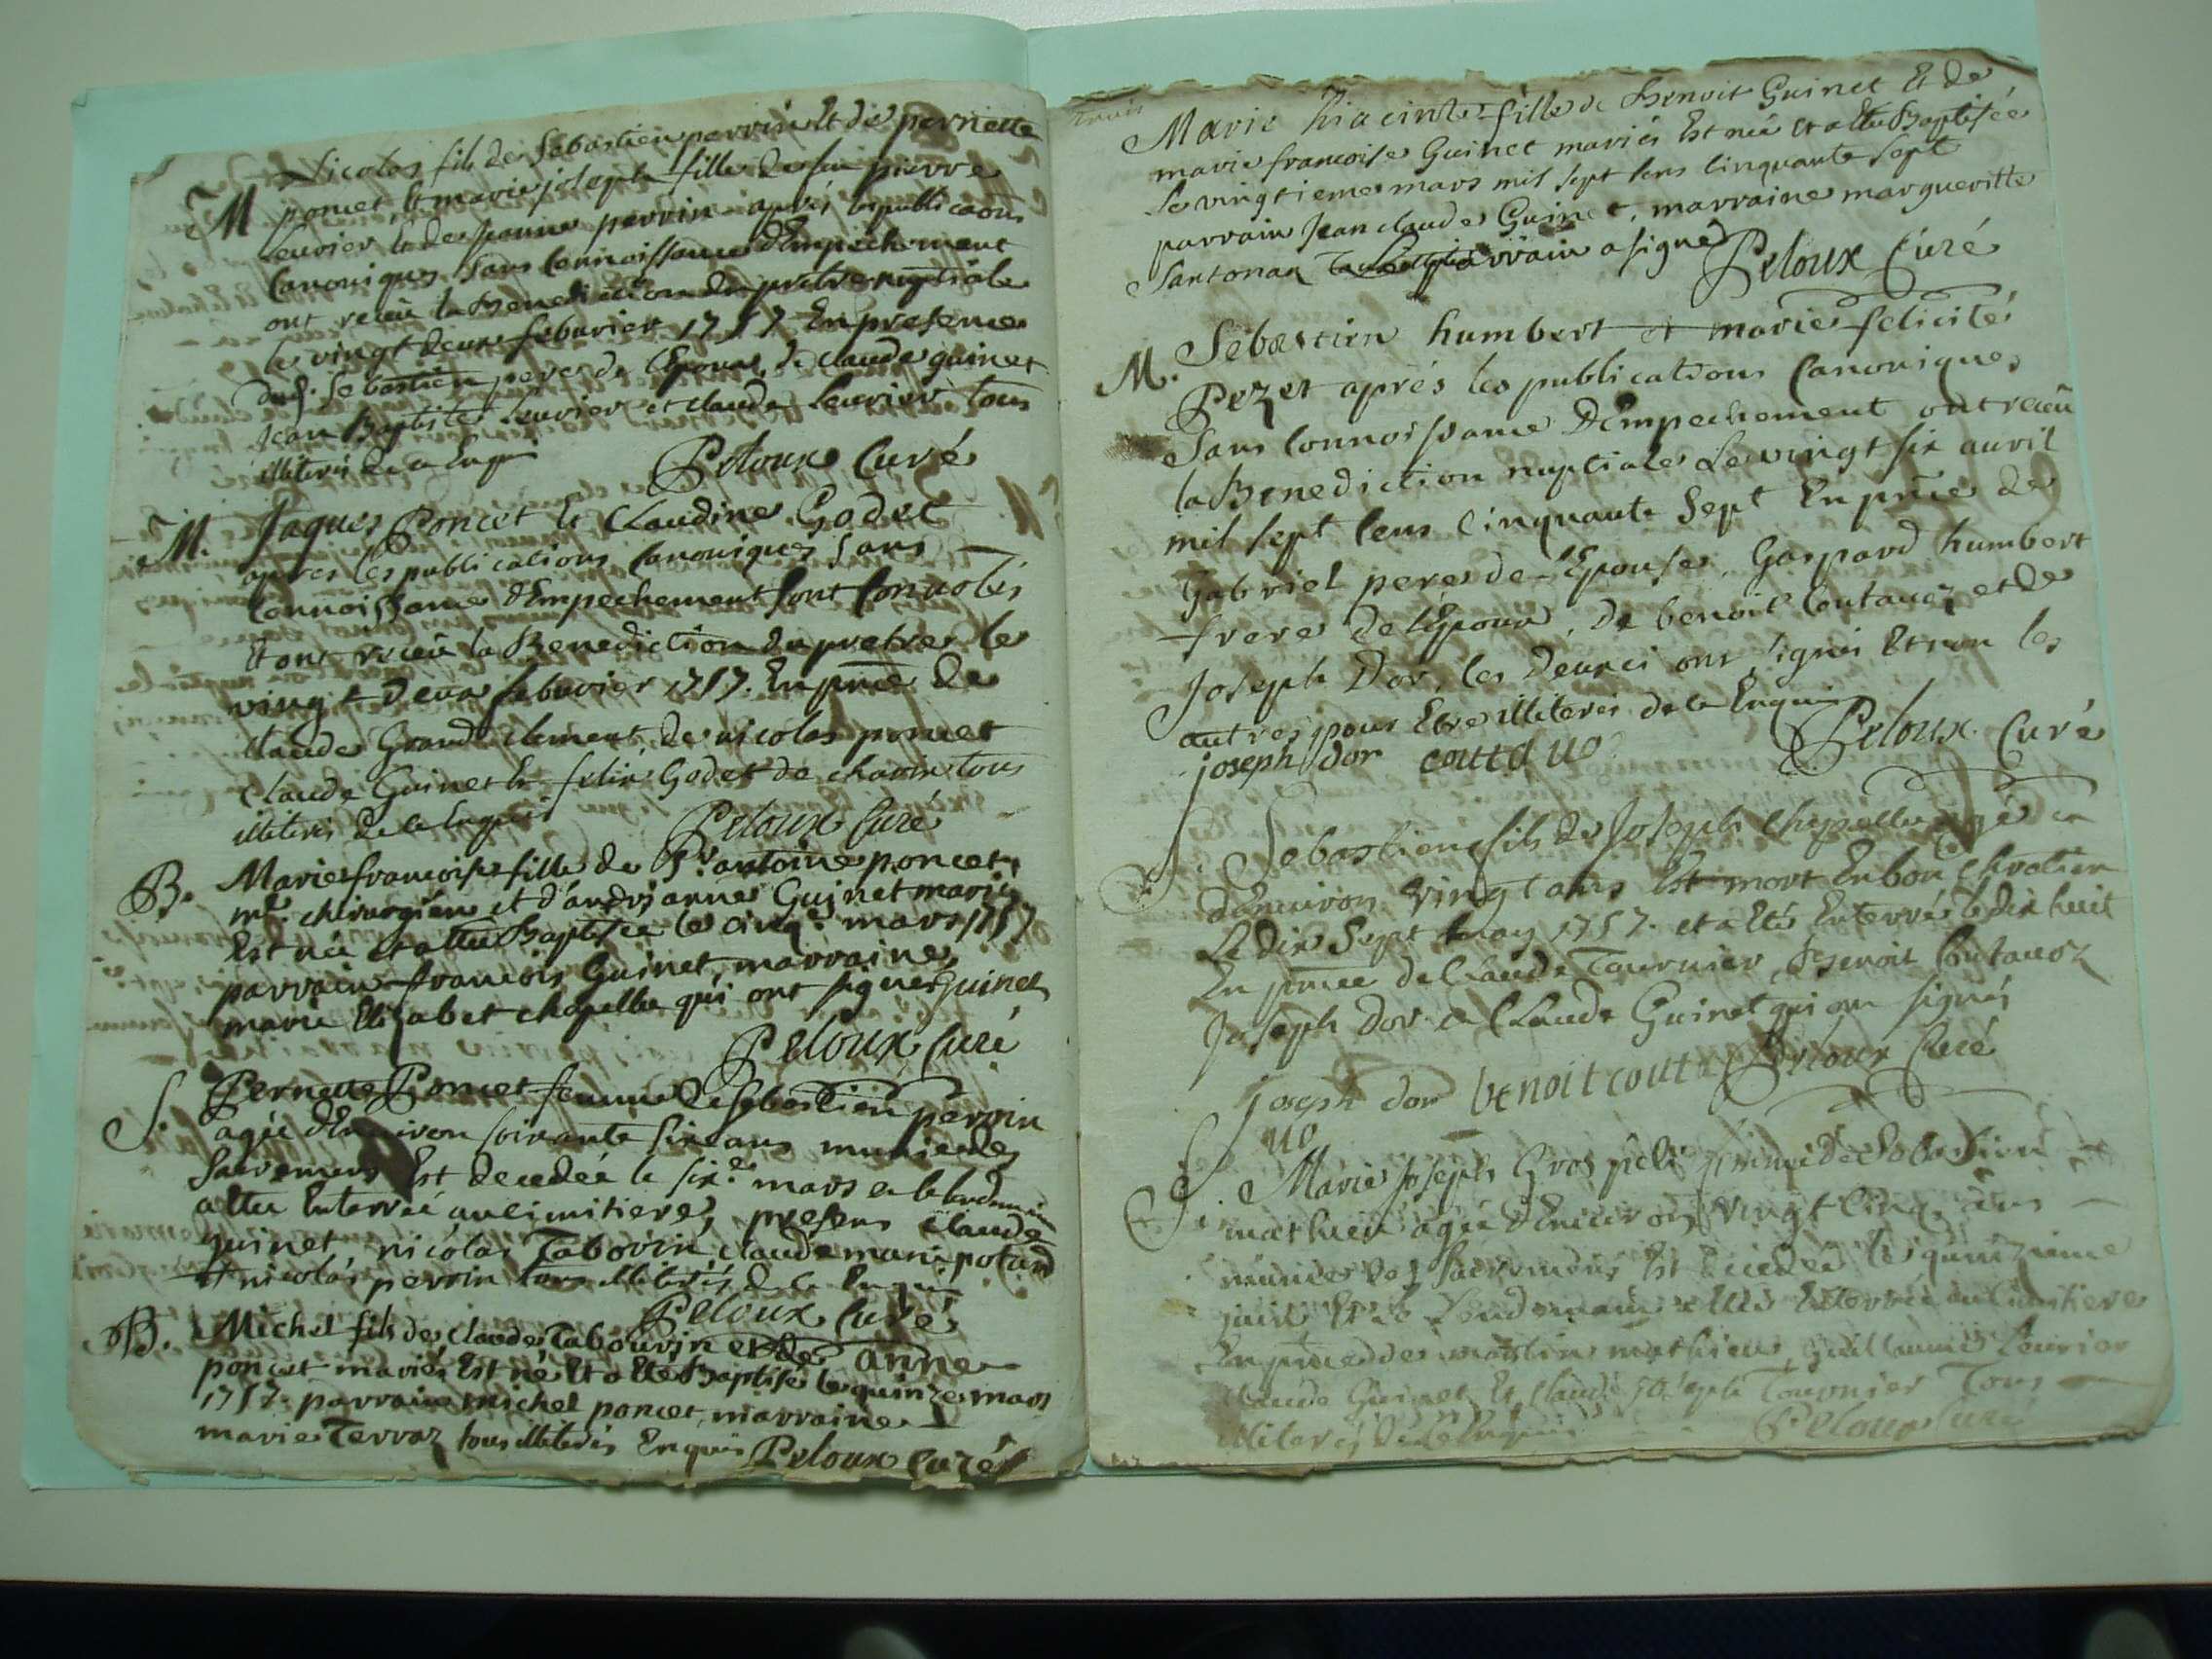 Nicolas fils de Sebastien perrin et de pernette
M poncet, et marie joseph fille de feu pierre
leurier et de jeanne perrin après les publicaons
Canoniques sans connoissance d'Empechement
ont recûu la Benediction du pretre nuptiale
le vingt deux febuvrier 1757 En presence
dud. Sebastien pere de l'Epoux, de claude guinet
Jean Baptiste Leurier et claude Leurier tous
illiterés de ce Enquis
Peloux Curé
M. Jaques Poncet et Claudine Godet
après les publications canoniques sans
Connoissance d'Empechement sont convolés
Et ont recûu la Benediction du pretre le
vingt deux febuvrier 1757. En pñce de
claude Grand clement, de nicolas poncet
Claude Guinet et felix Godet de charix tous
illiterés de ce Enquis
Peloux Curé
B. Marie francoise fille de Sr. antoine poncet,
me. chirurgien et d'andrianne Guinet mariés
Est née et a étée Baptisée le cinq. mars 1757
parrain francois Guinet, marraine,
marie Elizabet chapelle qui ont signes guinet
Peloux Curé
S. Pernette Poncet femme de Sebastien perrin
agée d'Environ soixante six ans munie des
Sacremens Est decedée le six.e mars et le lendemain
a étée Enterrée au cimitiere, presens claude
guinet, nicolas Tabovrin, claude marie potard
et nicolas perrin tous illiterés de ce Enquis
Peloux Curé
B. Michel fils de claude, Tabouvrin et de anne
poncet mariés Est né Et a été Baptisé le quinze mars
1757. parrain michel poncet, marraine
marie Terraz tous illiterés Enquis Peloux Curé
Marie hiacinte fille de Benoit Guinet Et de
marie francoise Guinet mariés Est née et a étée Baptisée
le vingtieme mars mil sept cens cinquante sept
parrain Jean claude Guinet, marraine margueritte
Santonax parrain a signé
Peloux Curé
M. Sebastien humbert et marie felicité
Pezet aprés les publications Canoniques
Sans connoissance D'Empechement ont recûu
la Benediction nuptiale Le vingt six auril
mil sept cens cinquante Sept En pñce de
Gabriel pere de l'Epouse, Gaspard humbert
frere de l'Epoux, de benoit Coutauoz et de
Joseph Dor, les deux ci ont signés Et non les
autres pour Etre illiterés de ce Enquis
Peloux Curé
joseph dor coutauo
S. Sebastien fils de Joseph Chapelle agé
d'Environ vingt ans Est mort En bon chretien
Le dix Sept may 1757. et a été Enterré le dix huit
En pñce de Claude Tournier, Benoit Coutauoz
Joseph Dor et Claude Guinet qui ont signés
joseph dor benoit couta Peloux Curé
uo
S. Marie Joseph Grospelir femme de Sebastien
mathieu agée d'Environ vingt cinq ans
munie des Sacremens Est decedée le quinzieme
juin Et le lendemain a étée Enterrée au cimitiere
En pñce de martin mathieu, guillaume Leurier
claude Guinet Et claude joseph Tournier Tous
illiterés de ce Enquis
Peloux Curé